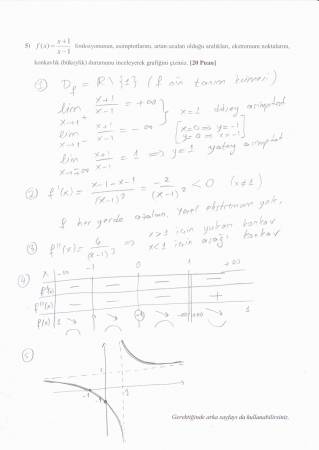 5) f(x) = x+1 / x-1 fonksiyonunun, asimptotlarını, artan azalan olduğu aralıkları, ekstremum noktalarını,
konkavlık (bükeylik) durumunu inceleyerek grafiğini çiziniz. [20 Puan]
① D_f = R \ {1} (f nin tanım kümesi)
lim x→1⁺ x+1 / x-1 = +∞
lim x→1⁻ x+1 / x-1 = -∞ } x=1 düşey asimptot
[x=0 ⇒ y=-1
y=0 ⇒ x=-1]
lim x→∓∞ x+1 / x-1 = 1 ⇒ y=1 yatay asimptot
② f'(x) = x-1-x-1 / (x-1)² = -2 / (x-1)² < 0 (x≠1)
f her yerde azalan. Yerel ekstremum yok.
③ f''(x) = 4 / (x-1)³ ⇒ x>1 için yukarı konkav
x<1 için aşağı konkav
④ x -∞ -1 0 1 +∞
f'(x) − − − −
f''(x) − − − +
f(x) 1 ↘ ↘ -1 ↘ -∞ +∞ ↘ 1
⑤
1
-1 1
-1
Gerektiğinde arka sayfayı da kullanabilirsiniz.